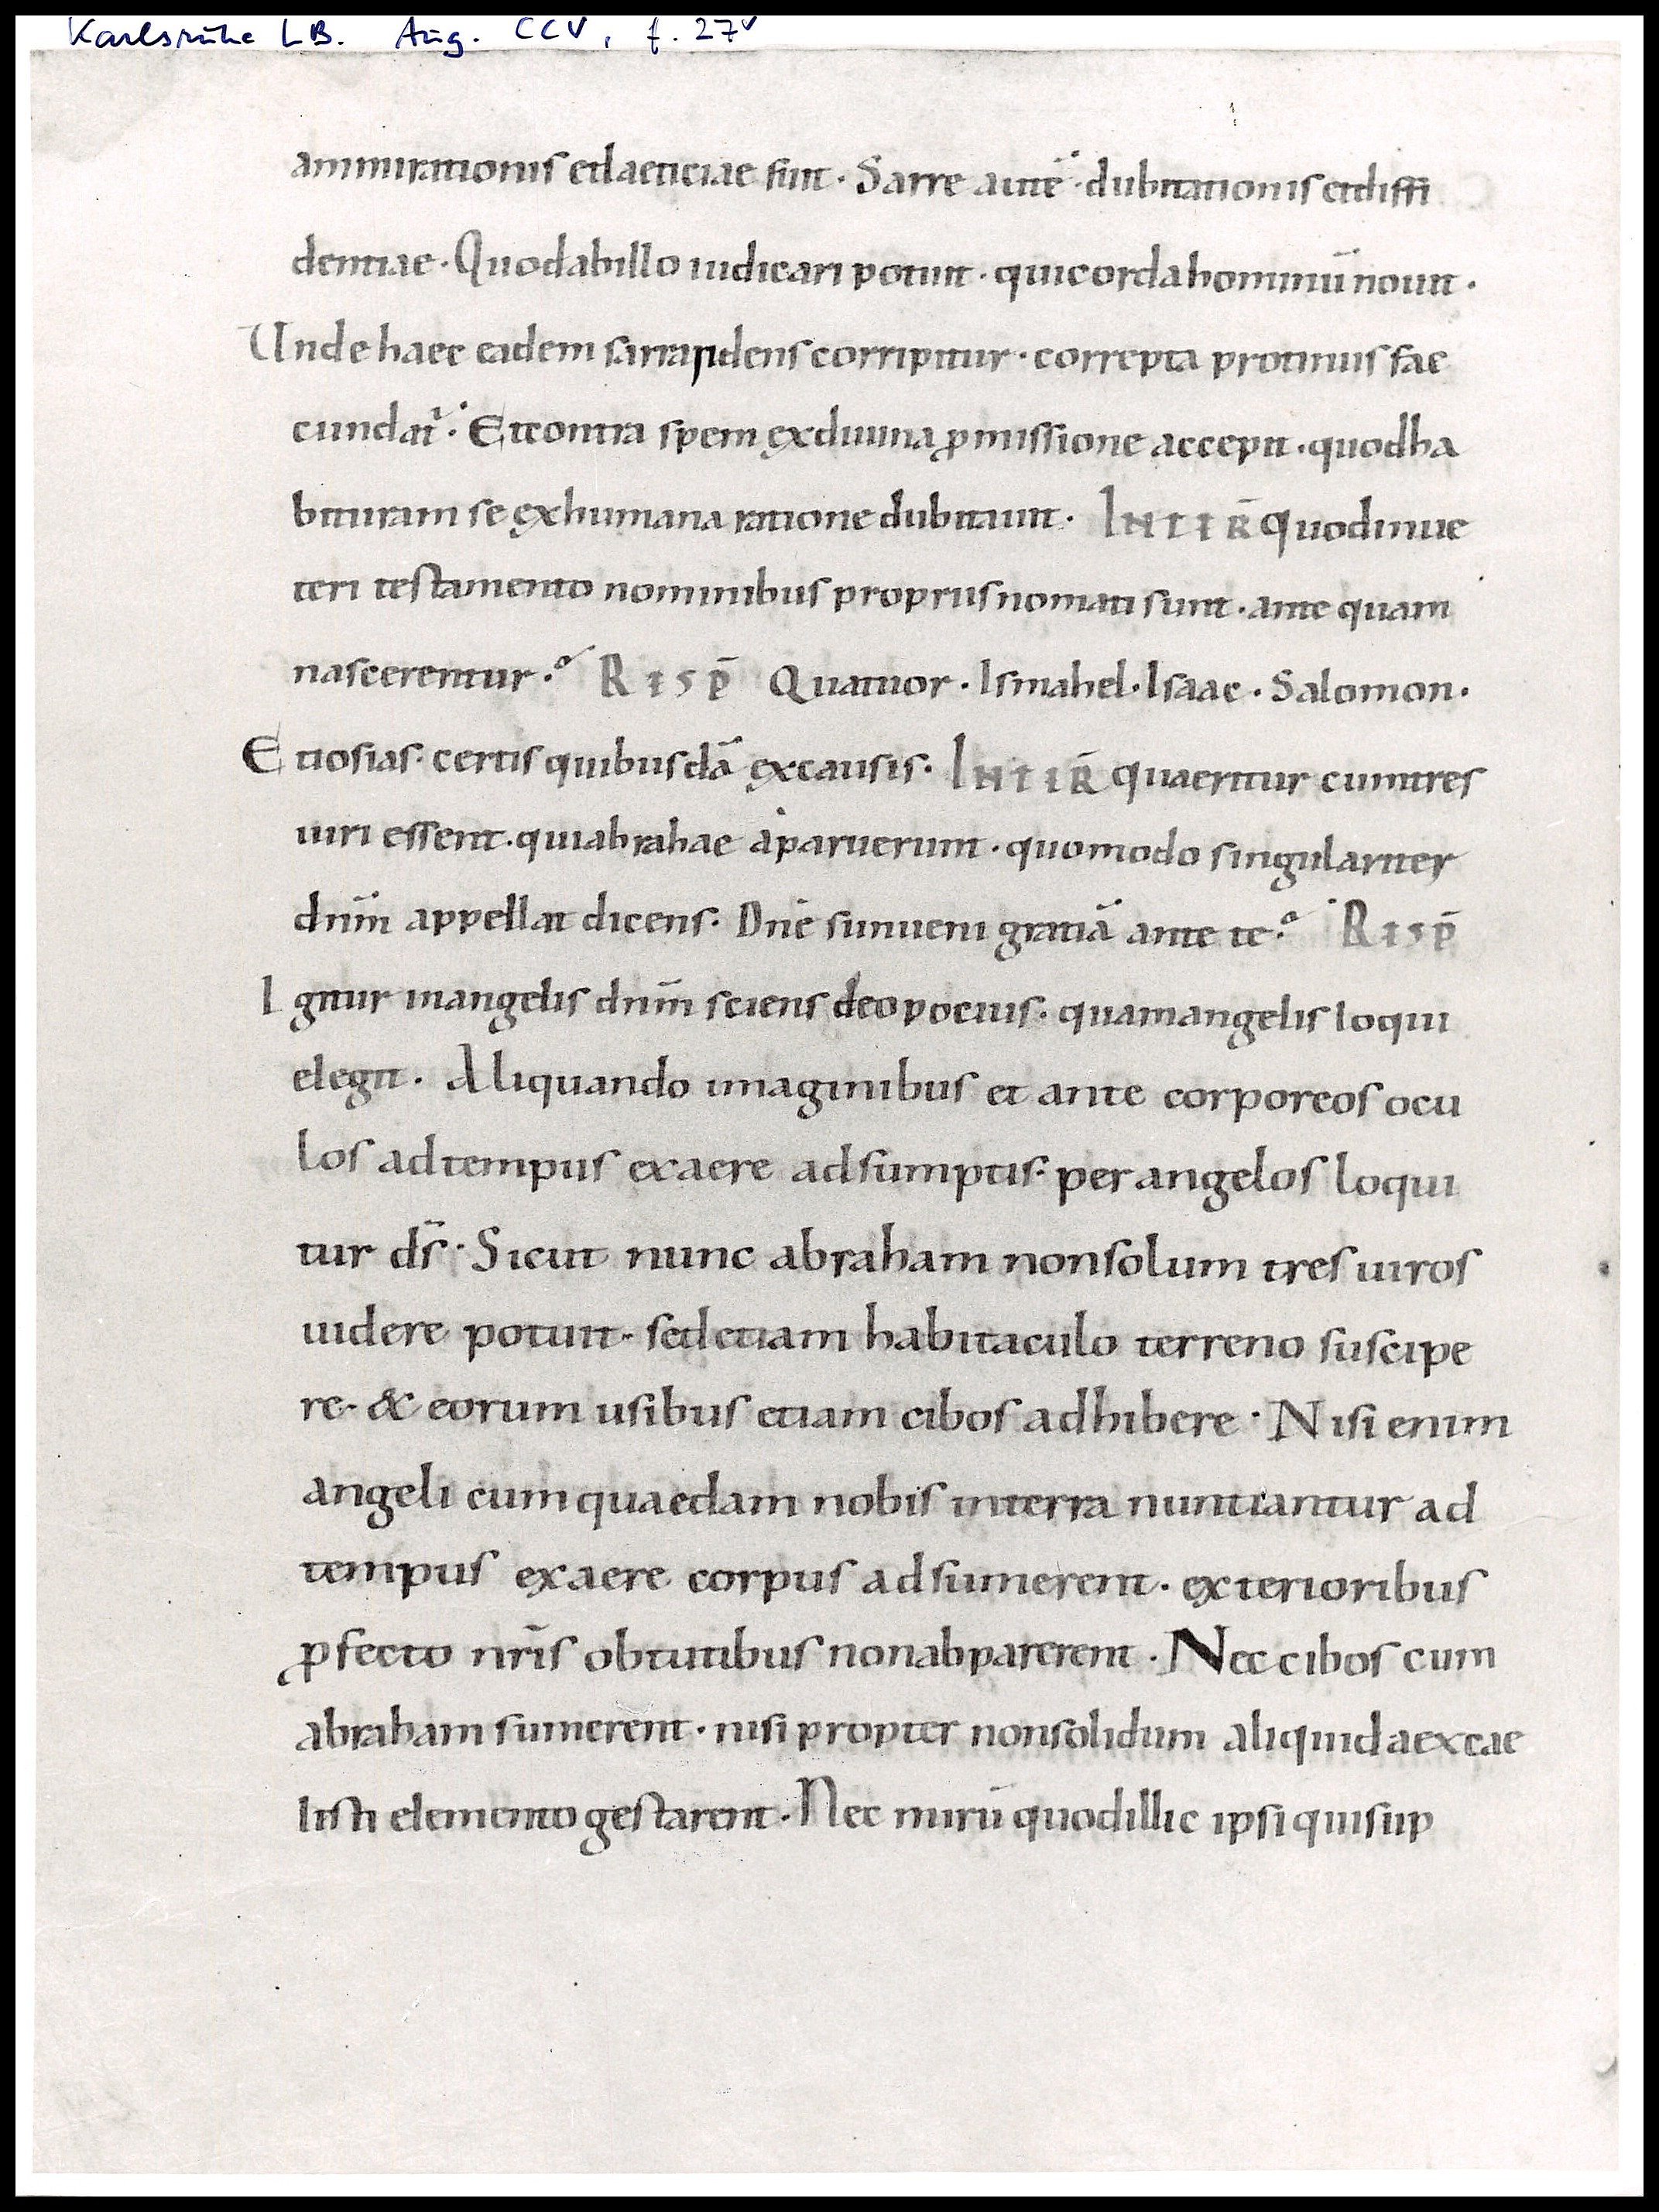 Karlsruhe LB. Aug. CCV, f. 27v
ammirationis etlaeticiae fuit · Sarre autē · dubitationis etdiffi
dentiae · Quodabillo iudicari potuit · quicordahominū nouit ·
Unde haec eadem sarraridens corripitur · correpta protinus fae
cundat᷑ · Etcontra spem exdiuina ꝓmissione accepit · quodha
bituram se exhumana ratione dubitauit · INTER̄ quodinue
teri testamento nominibus propriis nomati sunt · ante quam
nascerentur ·? RESP̄ Quatuor · Ismahel · Isaac · Salomon ·
Etiosias · certis quibusdā excausis · INTER̄ quaeritur cumtres
uiri essent · quiabrahae aparuerunt · quomodo singulariter
dnm̄ appellat dicens · Dnē siinueni gratiā ante te ·? RESP̄
Igitur inangelis dnm̄ sciens deopocius · quamangelis loqui
elegit · Aliquando imaginibus et ante corporeos ocu
los adtempus exaere adsumptis · per angelos loqui
tur ds̄ · Sicut nunc abraham nonsolum tres uiros
uidere potuit · sedetiam habitaculo terreno suscipe
re · & eorum usibus etiam cibos adhibere · Nisi enim
angeli cumquaedam nobis interra nuntiantur ad
tempus exaere corpus adsumerent · exterioribus
ꝓfecto nr̄is obtutibus nonabparerent · Nec cibos cum
abraham sumerent · nisi propter nonsolidum aliquidaexcae
lesti elemento gestarent · Nec mirū quodillic ipsi quisup